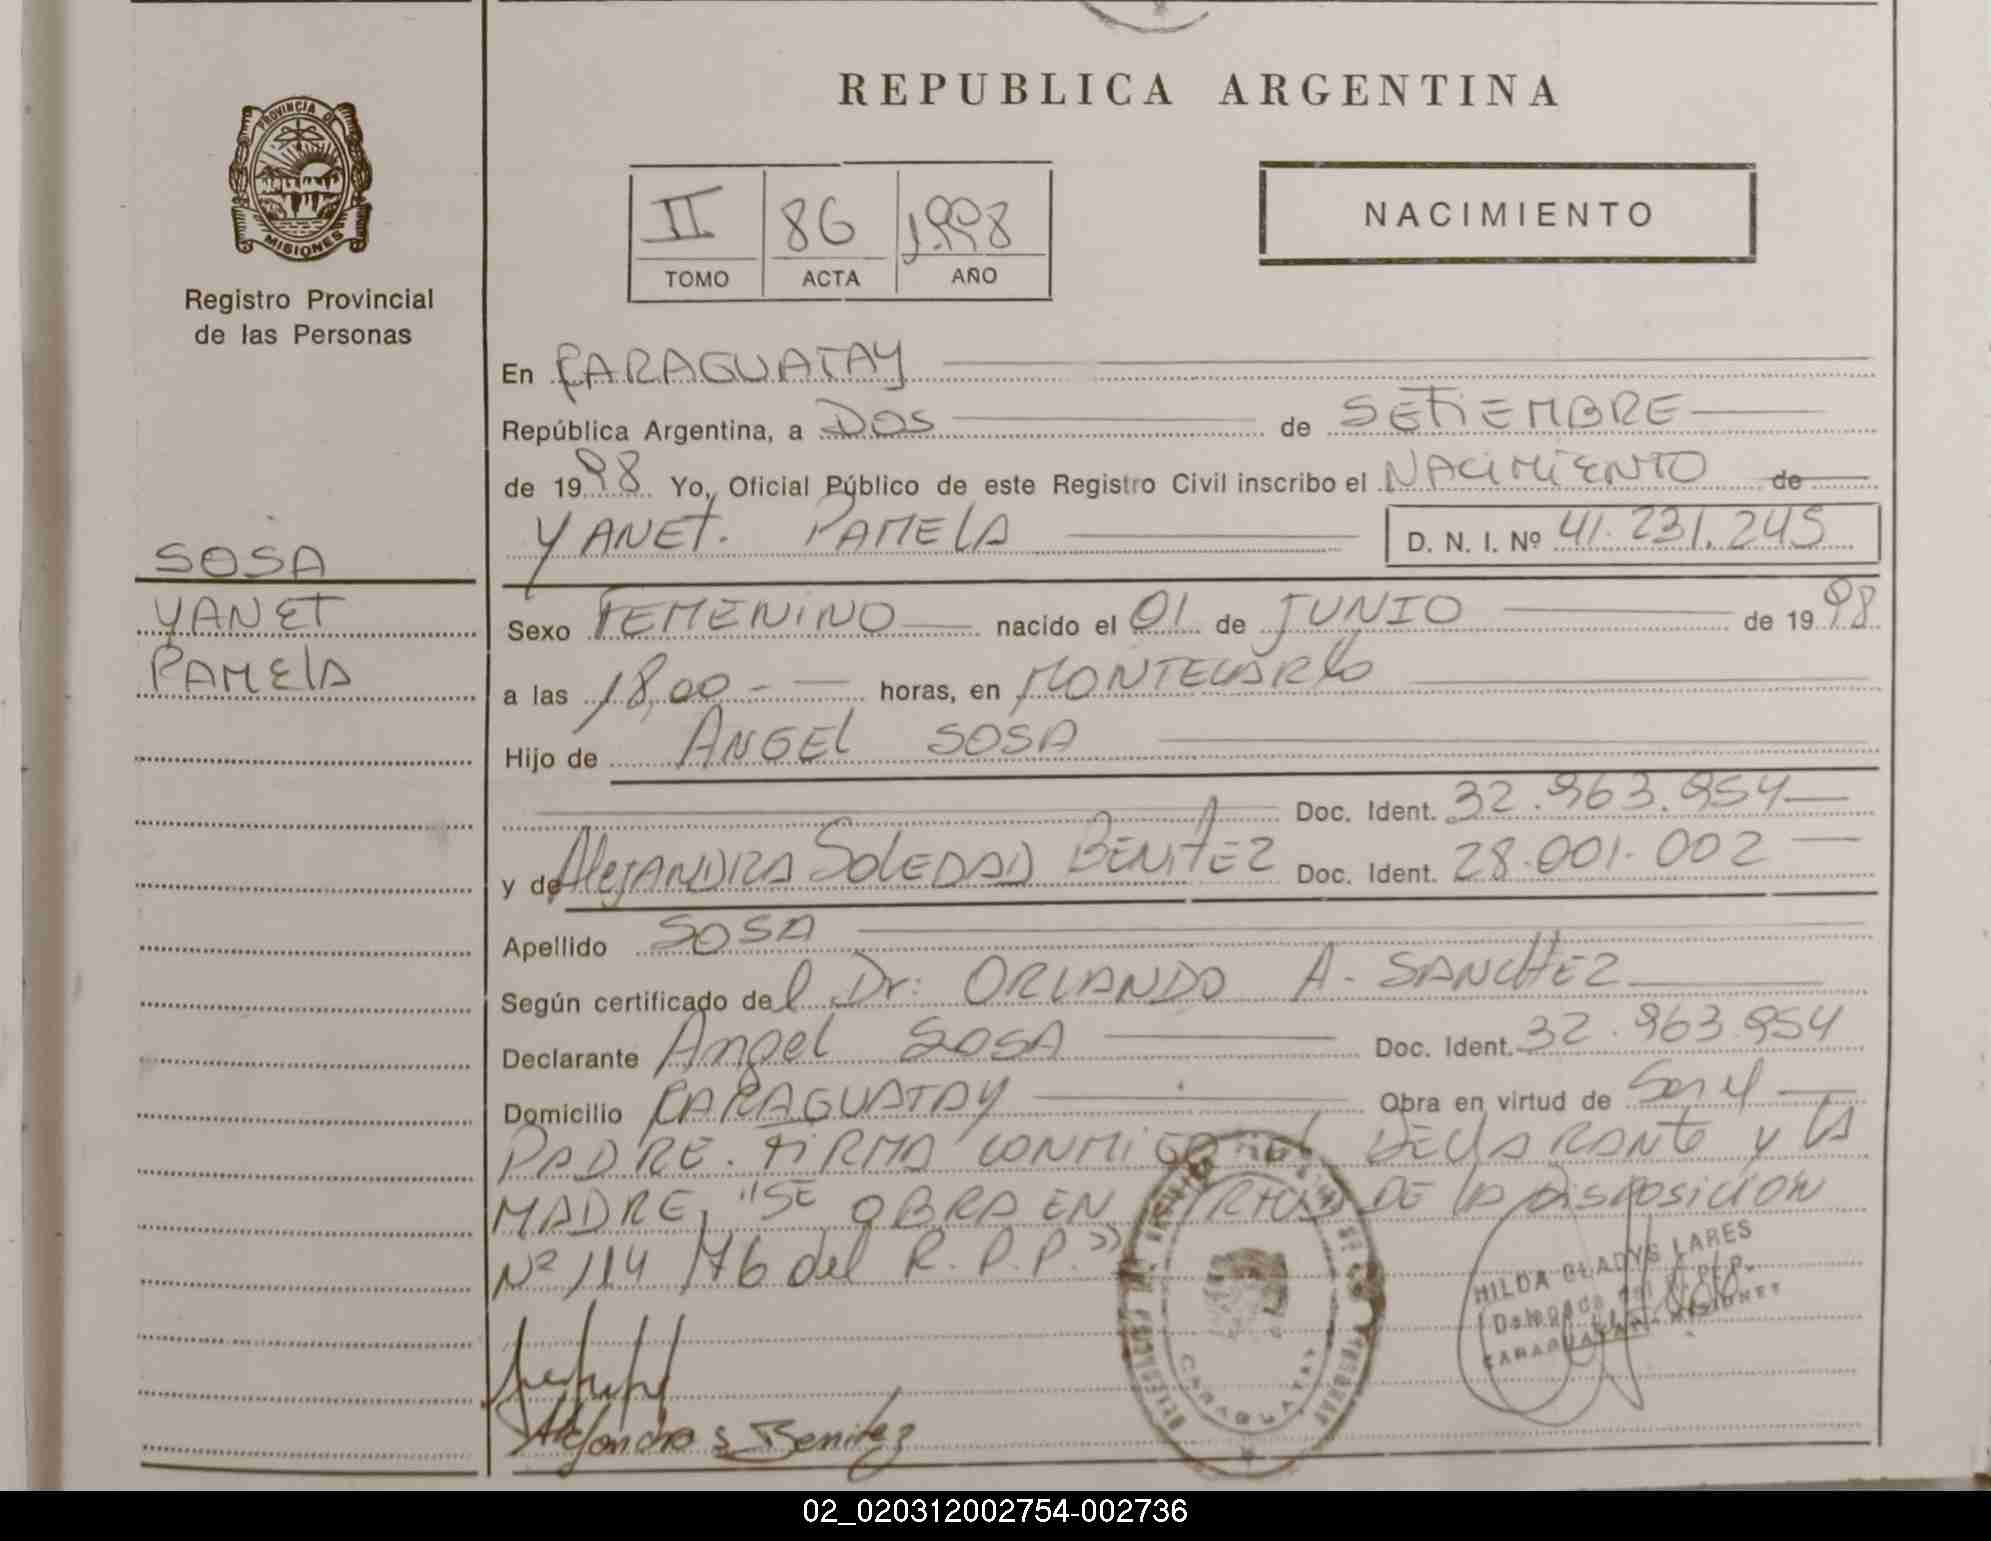 REPUBLICA ARGENTINA
PROVINCIA DE
MISIONES
Registro Provincial
de las Personas
II 86 1998
TOMO ACTA AÑO
NACIMIENTO
SOSA
YANET
PAMELA
En CARAGUATAY
República Argentina, a DOS de SETIEMBRE
de 1998 Yo, Oficial Público de este Registro Civil inscribo el NACIMIENTO de
YANET. PAMELA D. N. I. Nº 41.231.245
Sexo FEMENINO nacido el 01 de JUNIO de 1998
a las 18,00- horas, en MONTECARLO
Hijo de ANGEL SOSA
Doc. Ident. 32.963.954
y de AlEJANDRA SOLEDAD BENITEZ Doc. Ident. 28.001.002
Apellido SOSA
Según certificado del Dr: ORLANDO A. SANCHEZ
Declarante Angel SOSA Doc. Ident. 32.963.954
Domicilio CARAGUATAY Obra en virtud de Ser el
PADRE. FIRMA CONMIGO El DECLARANTE y LA
MADRE, "SE OBRA EN VIRTUD DE LA DISPOSICION
Nº 114/76 del R.P.P."
HILDA GLADYS LARES
Delegada del R.P.P.
CARAGUATAY - MISIONES
CARAGUATAY
Alejandra S Benitez
02_020312002754-002736